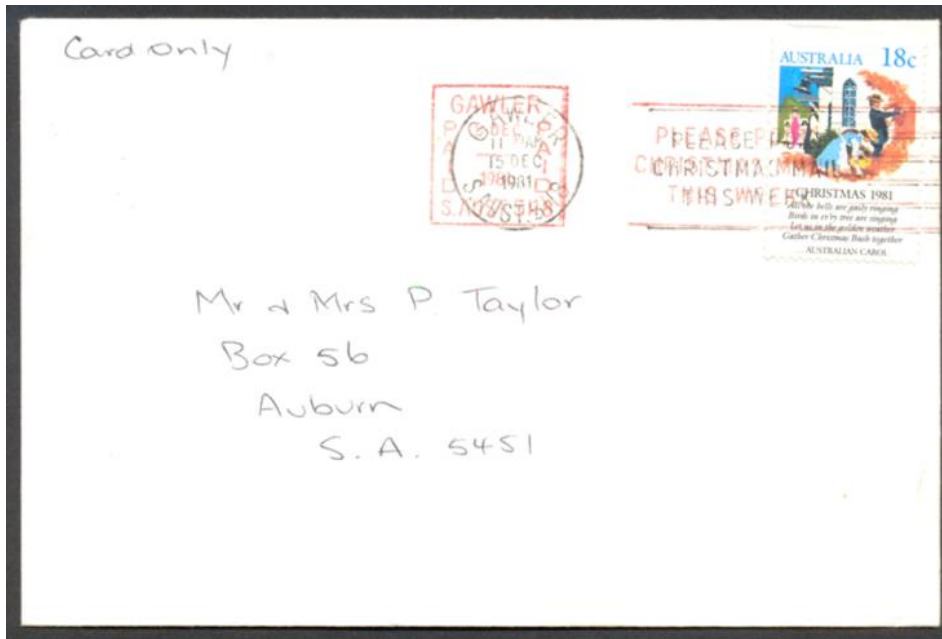 Card only
AUSTRALIA 18c
GAWLER
PAID
DEC
1981
GAWLER
15 DEC
1981
S. AUST.
PLEASE POST
CHRISTMAS MAIL
THIS WEEK
CHRISTMAS 1981
All the bells are gaily ringing
Birds in ev'ry tree are singing
Let us in the golden weather
Gather Christmas Bush together
AUSTRALIAN CAROL
Mr & Mrs P. Taylor
Box 56
Auburn
S. A. 5451